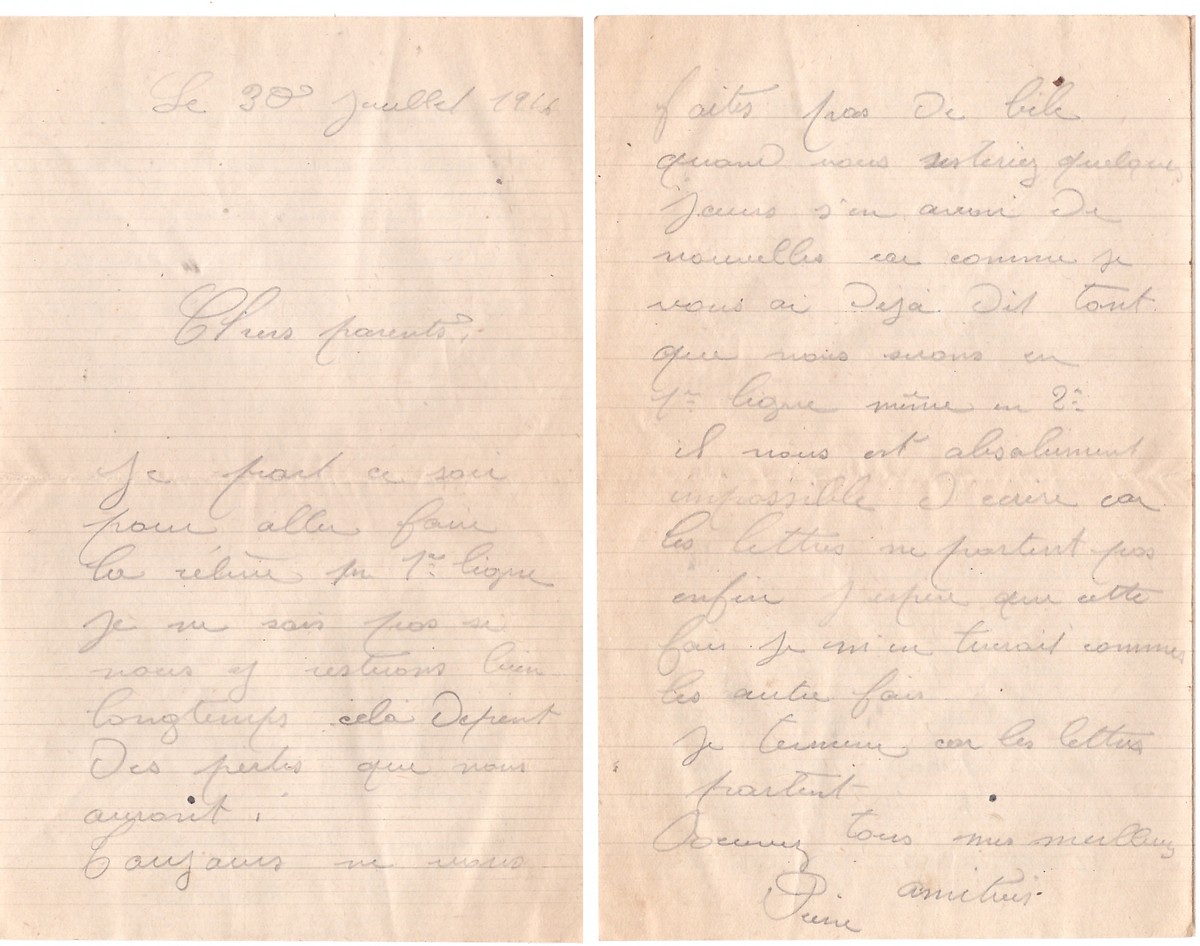 Le 30 Juillet 1916
Chers parents;
Je part ce soir
pour aller faire
la relève en 1re ligne
Je ne sais pas si
nous y resterons bien
longtemps cela depent
des pertes que nous
auront;
Toujours ne vous
faites pas de bile
quand vous resteriez quelques
jours s'en avoir de
nouvelles car comme je
vous ai deja dit tant
que nous serons en
1re ligne même en 2e
il nous est absolument
impossible d'ecrire car
les lettres ne partent pas
enfin j'espère que cette
fois je m'en tirerait comme
les autre fois
je termine car les lettres
partent
Recevez tous mes meilleurs
amitiés